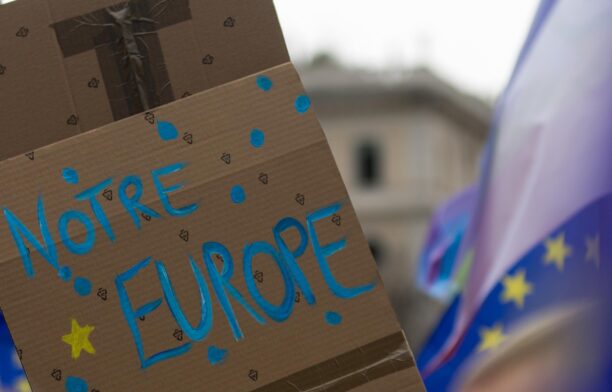 NOTRE
EUROPE